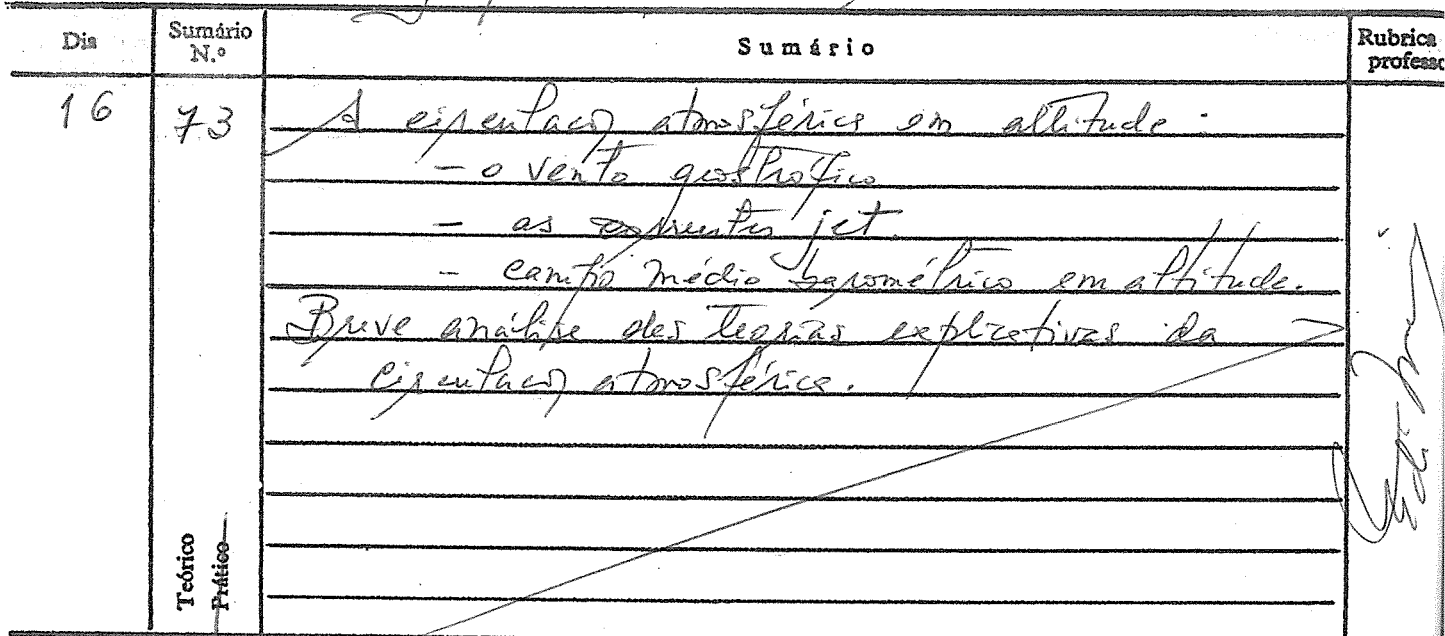 Dia
Sumário N.º
Sumário
Rubrica
professo
16
73
A circulação atmosférica em altitude:
- o vento geostrófico
- as correntes jet.
- campo médio barométrico em altitude.
Breve análise das teorias explicativas da
circulação atmosférica.
Teórico
Prático